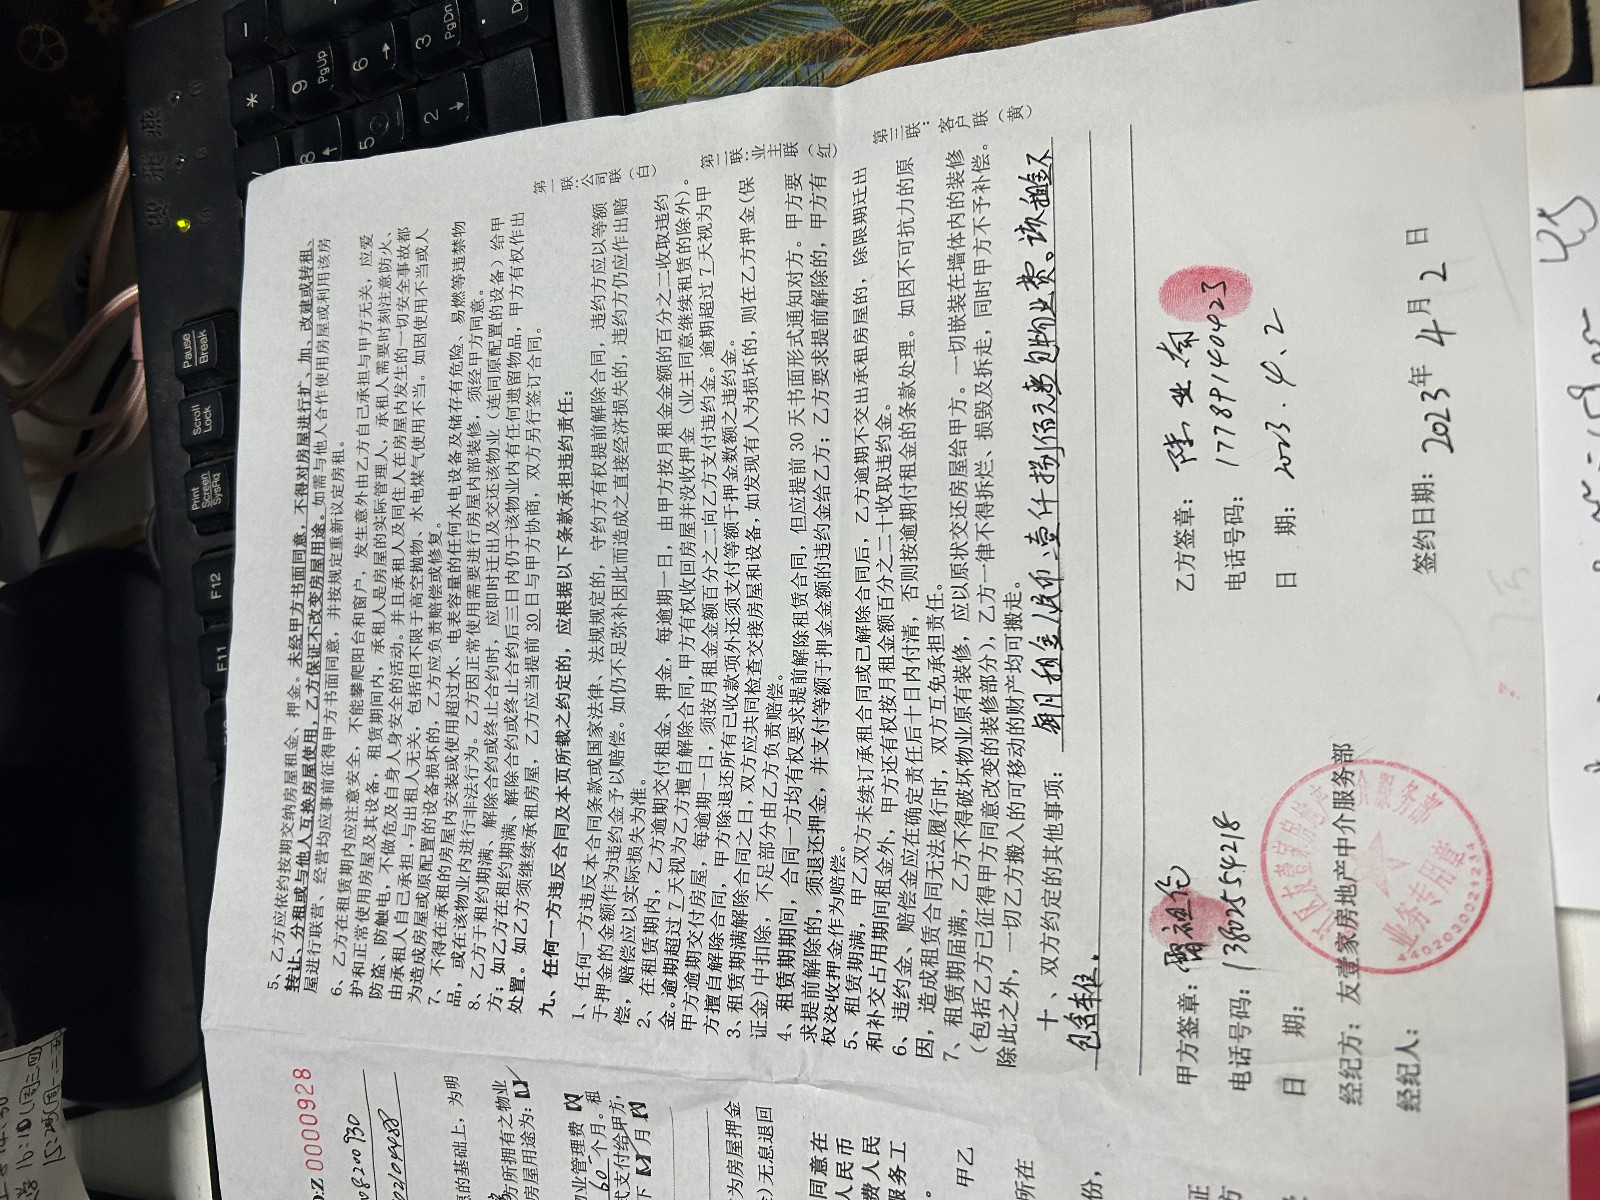 5、乙方应依约按期交纳房屋租金、押金。未经甲方书面同意，不得对房屋进行扩、加、改建或转租、
转让、分租或与他人互换房屋使用，乙方保证不改变房屋用途。如需与他人合作使用房屋或利用该房
屋进行联营、经营均应事前征得甲方书面同意，并按规定重新议定房租。
6、乙方在租赁期内应注意安全，不能攀爬阳台和窗户，发生意外由乙方自己承担与甲方无关，应爱
护和正常使用房屋及其设备，租赁期间内，承租人是房屋的实际管理人，承租人需要时刻注意防火、
防盗、防触电，不做危及自身人身安全的活动。并且承租人及同住人在房屋内发生的一切安全事故都
由承租人自己承担，与出租人无关，包括但不限于高空抛物、水电煤气使用不当。如因使用不当或人
为造成房屋或原配置的设备损坏的，乙方应负责赔偿或修复。
7、不得在承租的房屋内安装或使用超过水、电表容量的任何水电设备及储存有危险、易燃等违禁物
品，或在该物业内进行非法行为。乙方因正常使用需要进行房屋内部装修，须经甲方同意。
8、乙方于租约期满、解除合约或终止合约时，应即时迁出及交还该物业（连同原配置的设备）给甲
方；如乙方在租约期满、解除合约或终止合约后三日内仍于该物业内有任何遗留物品，甲方有权作出
处置。如乙方须继续承租房屋，乙方应当提前30日与甲方协商，双方另行签订合同。
九、任何一方违反合同及本页所载之约定的，应根据以下条款承担违约责任：
1、任何一方违反本合同条款或国家法律、法规规定的，守约方有权提前解除合同，违约方应以等额
于押金的金额作为违约金予以赔偿。如仍不足弥补因此而造成之直接经济损失的，违约方仍应作出赔
偿，赔偿应以实际损失为准。
2、在租赁期内，乙方逾期交付租金、押金，每逾期一日，由甲方按月租金金额的百分之二收取违约
金。逾期超过7天视为乙方擅自解除合同，甲方有权收回房屋并没收押金（业主同意继续租赁的除外）。
甲方逾期交付房屋，每逾期一日，须按月租金金额百分之二向乙方支付违约金。逾期超过7天视为甲
方擅自解除合同，甲方除退还所有已收款项外还须支付等额于押金数额之违约金。
3、租赁期满解除合同之日，双方应共同检查交接房屋和设备，如发现有人为损坏的，则在乙方押金（保
证金）中扣除，不足部分由乙方负责赔偿。
4、租赁期期间，合同一方均有权要求提前解除租赁合同，但应提前30天书面形式通知对方。甲方要
求提前解除的，须退还押金，并支付等额于押金金额的违约金给乙方；乙方要求提前解除的，甲方有
权没收押金作为赔偿。
5、租赁期满，甲乙双方未续订承租合同或已解除合同后，乙方逾期不交出承租房屋的，除限期迁出
和补交占用期间租金外，甲方还有权按月租金额百分之二十收取违约金。
6、违约金、赔偿金应在确定责任后十日内付清，否则按逾期付租金的条款处理。如因不可抗力的原
因，造成租赁合同无法履行时，双方互免承担责任。
7、租赁期届满，乙方不得破坏物业原有装修，应以原状交还房屋给甲方。一切嵌装在墙体内的装修
（包括乙方已征得甲方同意改变的装修部分），乙方一律不得拆烂、损毁及拆走，同时甲方不予补偿。
除此之外，一切乙方搬入的可移动的财产均可搬走。
十、双方约定的其他事项：每月租金人民币壹仟捌佰元来包物业费、该租金不
包含车位。
第一联：公司联（白）
第二联：业主联（红）
第三联：客户联（黄）
甲方签章：
电话号码：13802554218
日 期：
经纪方：友壹家房地产中介服务部
经纪人：
乙方签章：陆业奇
电话号码：17789140423
日 期：2023.4.2
签约日期：2023年4月2日
业务专用章
4402030021234
0.Z 0000928
08200930
为房屋押金
）无息退回
同意在
人民币
费人民
服务工
甲乙
所在
份，
Print Screen SysRq
Scroll Lock
Pause Break
F11
F12
PgUp
PgDn